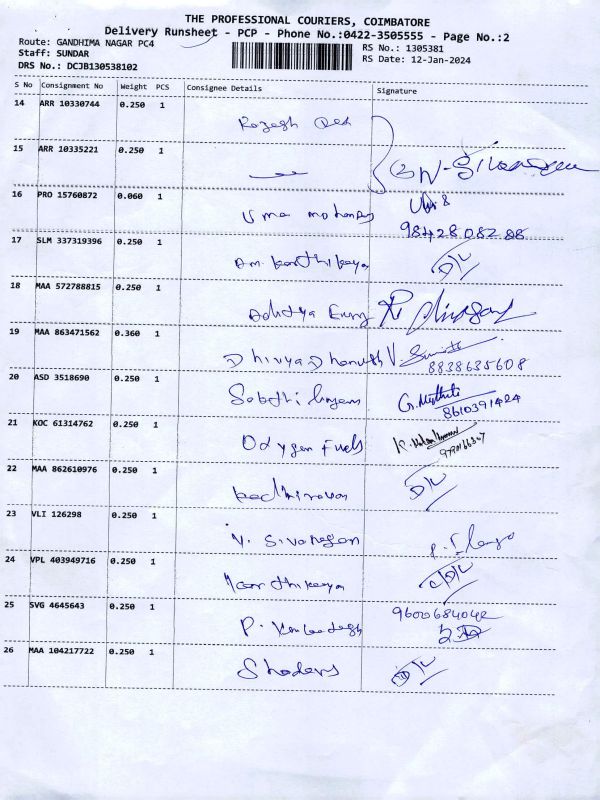 THE PROFESSIONAL COURIERS, COIMBATORE
Delivery Runsheet - PCP - Phone No.:0422-3505555 - Page No.:2
Route: GANDHIMA NAGAR PC4
RS No.: 1305381
Staff: SUNDAR
RS Date: 12-Jan-2024
DRS No.: DCJB130538102
S No Consignment No Weight PCS Consignee Details Signature
14 ARR 10330744 0.250 1
15 ARR 10335221 0.250 1
16 PRO 15760872 0.060 1 Uma mohandas
98428 08288
17 SLM 337319396 0.250 1 Am. Karthikeya D/L
18 MAA 572788815 0.250 1 Adhitya
19 MAA 863471562 0.360 1 Dhivya Dhanush V.
8838635608
20 ASD 3518690 0.250 1 Sabothi lingam
8610391424
21 KOC 61314762 0.250 1 Odygen Fuels
22 MAA 862610976 0.250 1 Kadhiravan D/L
23 VLI 126298 0.250 1 V. Sivanesan
24 VPL 403949716 0.250 1 Karthikeya
25 SVG 4645643 0.250 1 P. 9600684042
26 MAA 104217722 0.250 1 D/L